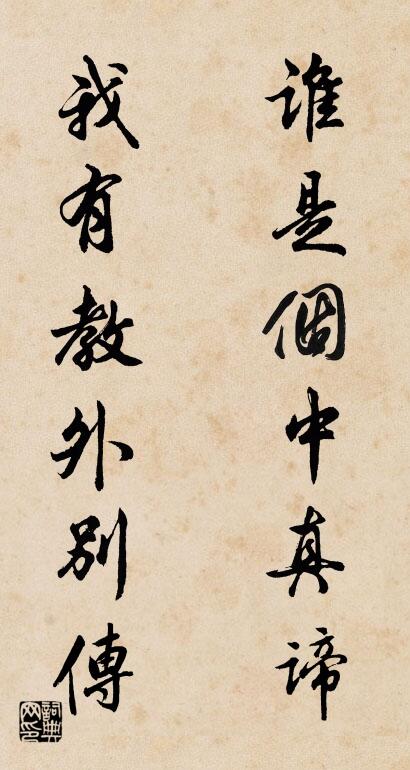 誰是個中真諦
我有教外別傳
詞典网印